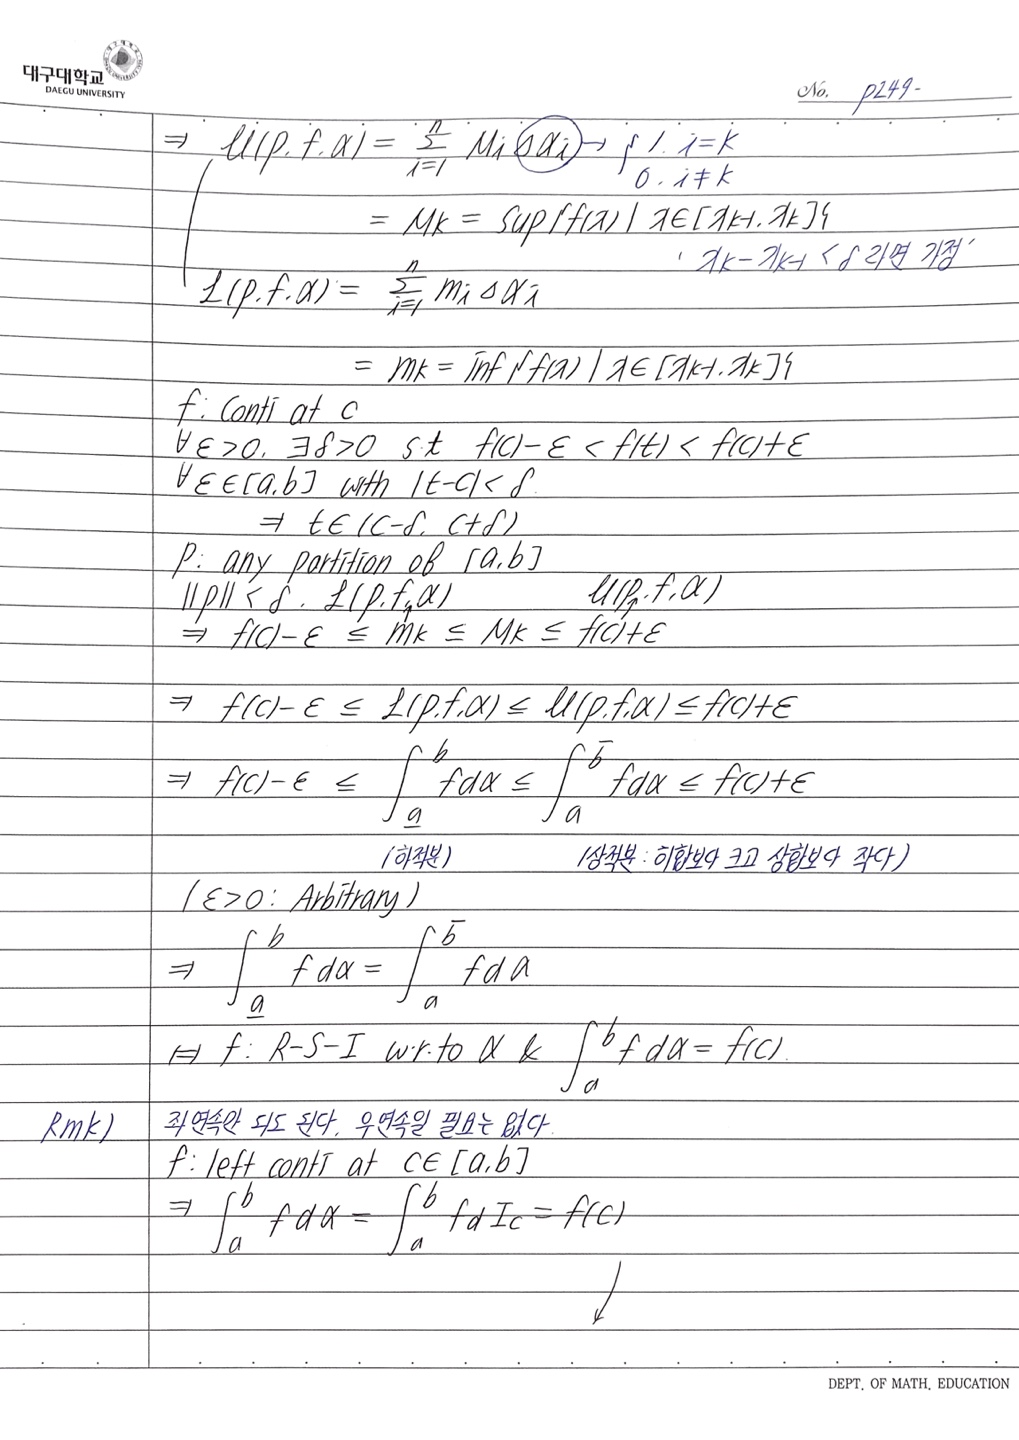 대구대학교
DAEGU UNIVERSITY
No. p249-
⇒ U(p.f.α) = Σ_{i=1}^{n} Mi Δαi → { 1. i=k
0. i≠k
= Mk = Sup{f(x) | x∈[xk-1.xk]}
' xk - xk-1 < δ 라면 가정'
L(p.f.α) = Σ_{i=1}^{n} mi Δαi
= mk = inf{f(x) | x∈[xk-1.xk]}
f: Conti at c
∀ε>0. ∃δ>0 s.t f(c)-ε < f(t) < f(c)+ε
∀ε∈[a,b] with |t-c|<δ.
⇒ t∈(c-δ. c+δ)
p: any partition of [a,b]
||p|| < δ. L(p.f.α) U(p.f.α)
⇒ f(c)-ε ≤ mk ≤ Mk ≤ f(c)+ε
⇒ f(c)-ε ≤ L(p.f.α) ≤ U(p.f.α) ≤ f(c)+ε
⇒ f(c)-ε ≤ ∫_{a̲}^{b} fdα ≤ ∫_{a}^{b̄} fdα ≤ f(c)+ε
(하적분) (상적분: 하합보다 크고 상합보다 작다)
(ε>0: Arbitrary)
⇒ ∫_{a̲}^{b} f dα = ∫_{a}^{b̄} f dα
⇔ f: R-S-I w.r.to α & ∫_{a}^{b} f dα = f(c).
Rmk) 좌연속만 되도 된다. 우연속일 필요는 없다.
f: left conti at c∈[a,b]
⇒ ∫_{a}^{b} f dα = ∫_{a}^{b} f d Ic = f(c)
DEPT. OF MATH. EDUCATION